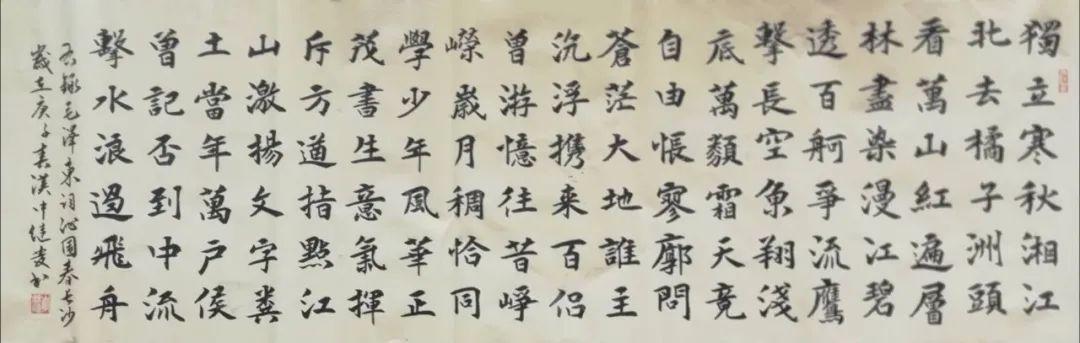 獨立寒秋湘江
北去橘子洲頭
看萬山紅遍層
林盡染漫江碧
透百舸爭流鷹
擊長空魚翔淺
底萬類霜天竞
自由悵寥廓問
蒼茫大地誰主
沉浮携来百侣
曾游憶往昔崢
嶸歲月稠恰同
學少年風華正
茂書生意氣揮
斥方遒指點江
山激揚文字糞
土當年萬戶侯
曾記否到中流
擊水浪遏飛舟
右録毛澤東词沁园春长沙
歲在庚子春漢中